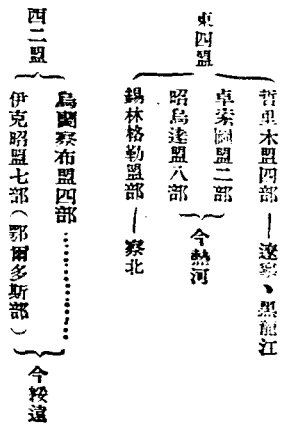 東四盟
哲里木盟四部——遼寧、黑龍江
卓索圖盟二部
昭烏達盟八部
今熱河
錫林格勒盟部——察北
西二盟
烏蘭察布盟四部…………
伊克昭盟七部（鄂爾多斯部）
今綏遠